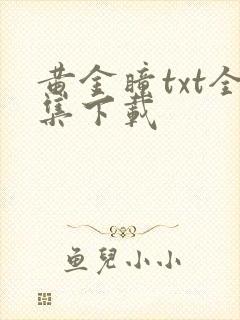 黄金瞳txt全
集下载
鱼兒小小